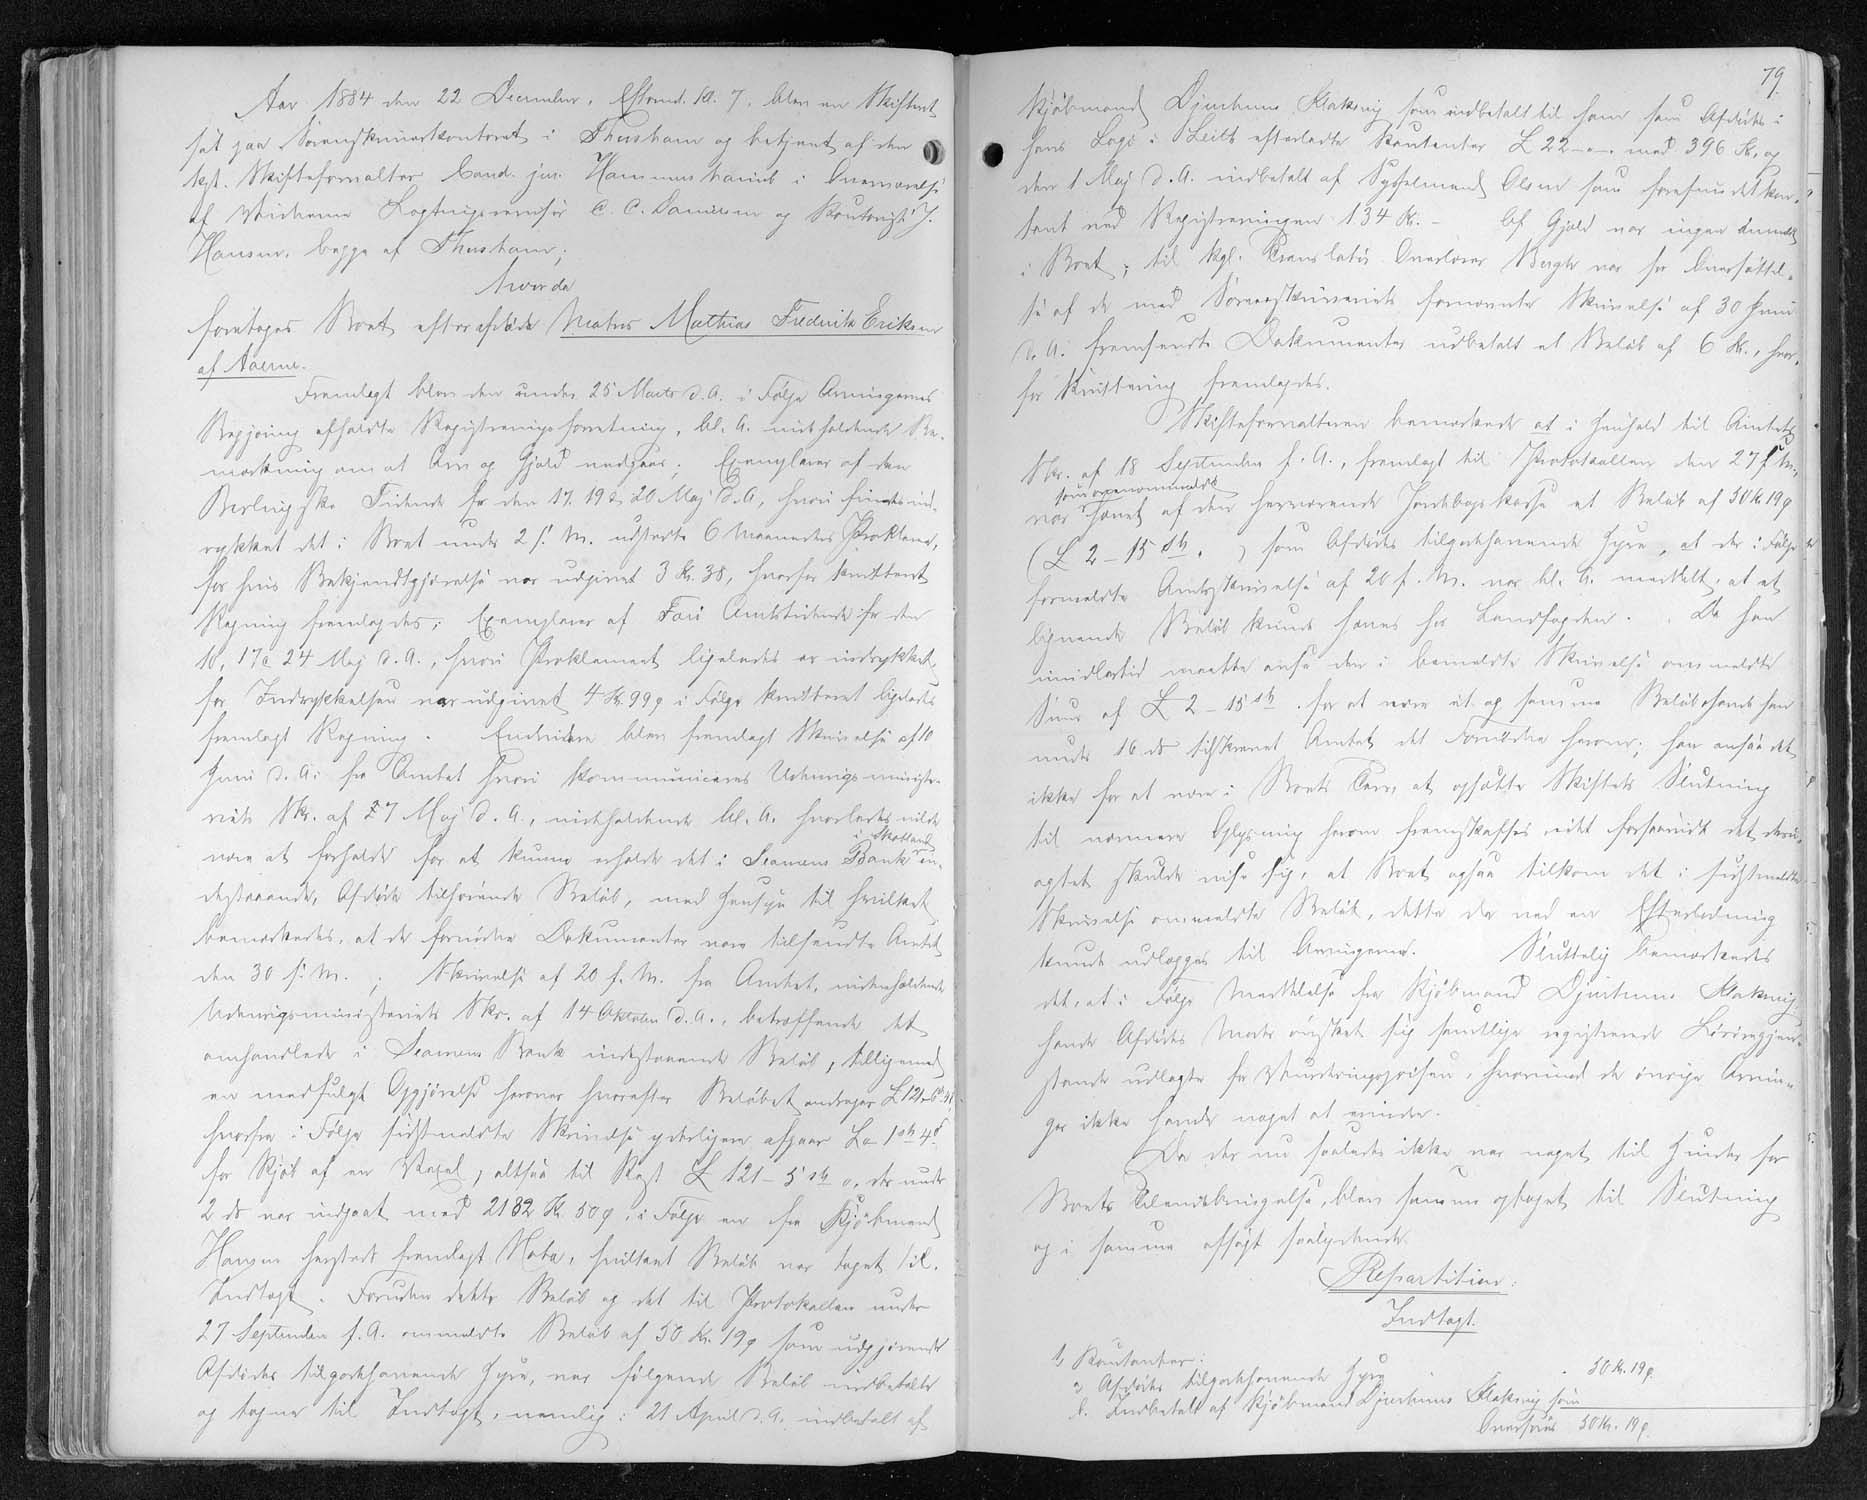 Aar 1884 den 22 December, Eftermd. Kl. 7, blev en Skifteret
sat paa Sorenskriverkontoret i Thorshavn og betjent af den
kgl. Skifteforvalter Cand. jur. Hammershaimb i Overværelse
af Vidnerne Lagtingsrevisor C. C. Danielsen og Kontorist J.
Hansen, begge af Thorshavn;
Hvorda
foretoges Boet efter afdøde Matros Mathias Fredrik Eriksen
af Aaerne.
Fremlagt blev den under 25 Marts d.A. i Følge Arvingernes
Begjæring afholdte Registreringsforretning, bl. A. indeholdende Be-
mærkning om at Arv og Gjæld vedgaaes; Exemplarer af den
Berlingske Tidende for den 17, 19 & 20 Maj d.A., hvori findes ind-
rykket det i Boet under 2 s. M. udstedte 6 Maaneders Proklama,
for hvis Bekjendtgjørelse var udgivet 3 Kr. 38, hvorfor kvitteret
Regning fremlagdes; Exemplarer af Færø Amtstidende for den
10, 17 & 24 Maj d.A., hvori Proklamaet ligeledes er indrykket,
for Indrykkelsen var udgivet 4 Kr. 99 ø i Følge kvitteret ligeledes
fremlagt Regning. Endvidere blev fremlagt Skrivelse af 10
Juni d.A. fra Amtet hvori kommuniceres Udenrigsministe-
riets Skr. af 27 Maj d.A., indeholdende bl. A. hvorledes vilde
være at forholde for at kunne erholde det i Seamens Bank i Skotland in-
destaaende, Afdøde tilhørende Beløb, med Hensyn til hvilket
bemærkedes, at de fornødne Dokumenter vare tilsendte Amtet
den 30 s. M.; Skrivelse af 20 f. M. fra Amtet, indeholdende
Udenrigsministeriets Skr. af 14 Oktober d.A., betræffende det
omhandlede i Seamens Bank indestaaende Beløb, tilligemed
en medfulgt Opgjørelse herover hvorefter Beløbet andrager £ 121
hvorfra i Følge sidstmeldte Skrivelse yderligere afgaar £ 0 – 1 sh 4 d
for Kjøb af en Vexel, altsaa til Rest £ 121 – 5 sh, der under
2 ds var indgaaet med 2182 Kr. 50 ø, i Følge en fra Kjøbmand
Hansen herstedt fremlagt Nota, hvilket Beløb var taget til
Indtægt. Foruden dette Beløb og det til Protokollen under
27 September f.A. ommeldte Beløb af 50 Kr. 19 ø som udgjørende
Afdødes tilgodehavende Hyre, var følgende Beløb indbetalte
og tagne til Indtægt, nemlig: 21 April d.A. indbetalt af
79.
Kjøbmand Djurhuus Klaksvig som indbetalt til ham som Afdødes i
hans Logi i Leith efterladte Kontanter £ 22 – „ – „ med 396 Kr., og
den 1 Maj d.A. indbetalt af Sysselmand Olsen som forefundet kon-
tant ved Registreringen 134 Kr. – Af Gjæld var ingen anmeldt
i Boet; til kgl. Translatør Overlærer Bergh var for Oversættel-
se af de med Sorenskriveriets fornævnte Skrivelse af 30 Juni
d.A. fremsendte Dokumenter udbetalt et Beløb af 6 Kr., hvor-
for Kvittering fremlagdes.
Skifteforvalteren bemærkede at i Henhold til Amtets
Skr. af 18 September f.A., fremlagt til Protokollen den 27 s. M.,
som ovenommeldt
var hævet af den herværende Jordebogskasse et Beløb af 50 Kr 19 ø
(£ 2 – 15 sh. „) som Afdødes tilgodehavende Hyre, at der i Følge
formeldte Amtsskrivelse af 20 f. M. var bl. A. meddelt, at et
lignende Beløb kunde hæves hos Landfogden. Da han
imidlertid maatte anse den i bemeldte Skrivelse ommeldte
Sum af £ 2 – 15 sh. for at være et og samme Beløb havde han
under 16 ds tilskrevet Amtet det Fornødne herom; han ansaa det
ikke for at være i Boets Tarv, at opsætte Skiftets Slutning
til nærmere Oplysning herom fremskaffes, idet forsaavidt det derved
skulde vise sig, at Boet ogsaa tilkom det i sidstmeldte
Skrivelse ommeldte Beløb, dette da ved en Efterlodning
kunde udlægges til Arvingerne. Sluttelig bemærkedes
det, at i Følge Meddelelse fra Kjøbmand Djurhuus Klaksvig
havde Afdødes Moder ønsket sig samtlige registrerede Løsøregjen-
stande udlagte for Vurderingsprisen, hvorimod de øvrige Arvin-
ger ikke havde noget at erindre.
Da der nu saaledes ikke var noget til Hinder for
Boets Tilendebringelse, blev samme optaget til Slutning
og i samme afsagt saalydende
Repartition:
Indtægt.
1, Kontanter:
a, Afdødes tilgodehavende Hyre 50 Kr. 19 ø.
b. Indbetalt af Kjøbmand Djurhuus Klaksvig som
Overføres 50 Kr. 19 ø.